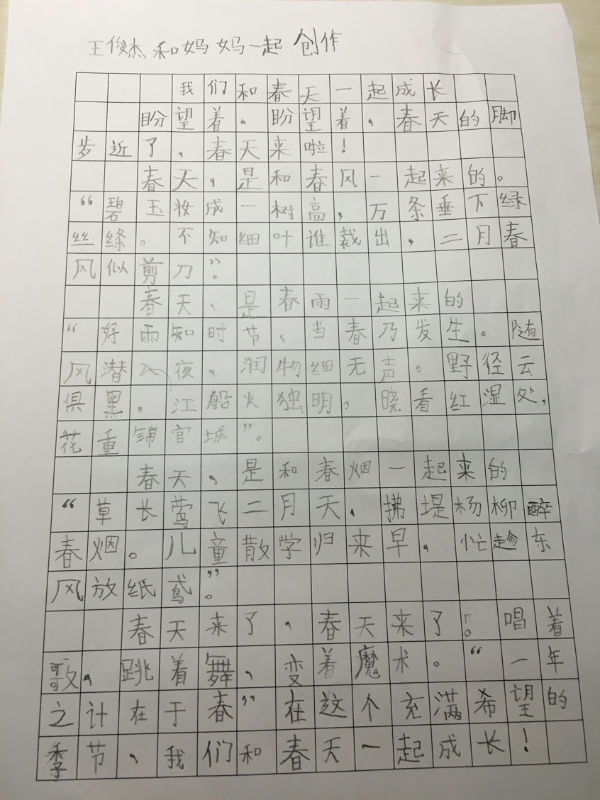 王俊杰和妈妈一起创作
我们和春天一起成长
盼望着，盼望着，春天的脚
步近了，春天来啦！
春天，是和春风一起来的。
“碧玉妆成一树高，万条垂下绿
丝绦。不知细叶谁裁出，二月春
风似剪刀”。
春天，是春雨一起来的
“好雨知时节，当春乃发生。随
风潜入夜，润物细无声。野径云
俱黑，江船火独明。晓看红湿处，
花重锦官城”。
春天，是和春烟一起来的
“草长莺飞二月天，拂堤杨柳醉
春烟。儿童散学归来早，忙趁东
风放纸鸢”。
春天来了，春天来了。唱着
歌，跳着舞，变着魔术。“一年
之计在于春”在这个充满希望的
季节，我们和春天一起成长！